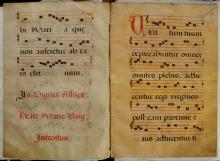 non auferetur ab ea
in eter num.
In Vigilia Assūpt.
Beate Marie Virg.
Introitus.
Vultum tuum
deprecabuntur omnes
divites plebis, addu
centur regi virgines
post eam proxime e
ius adducentur ti